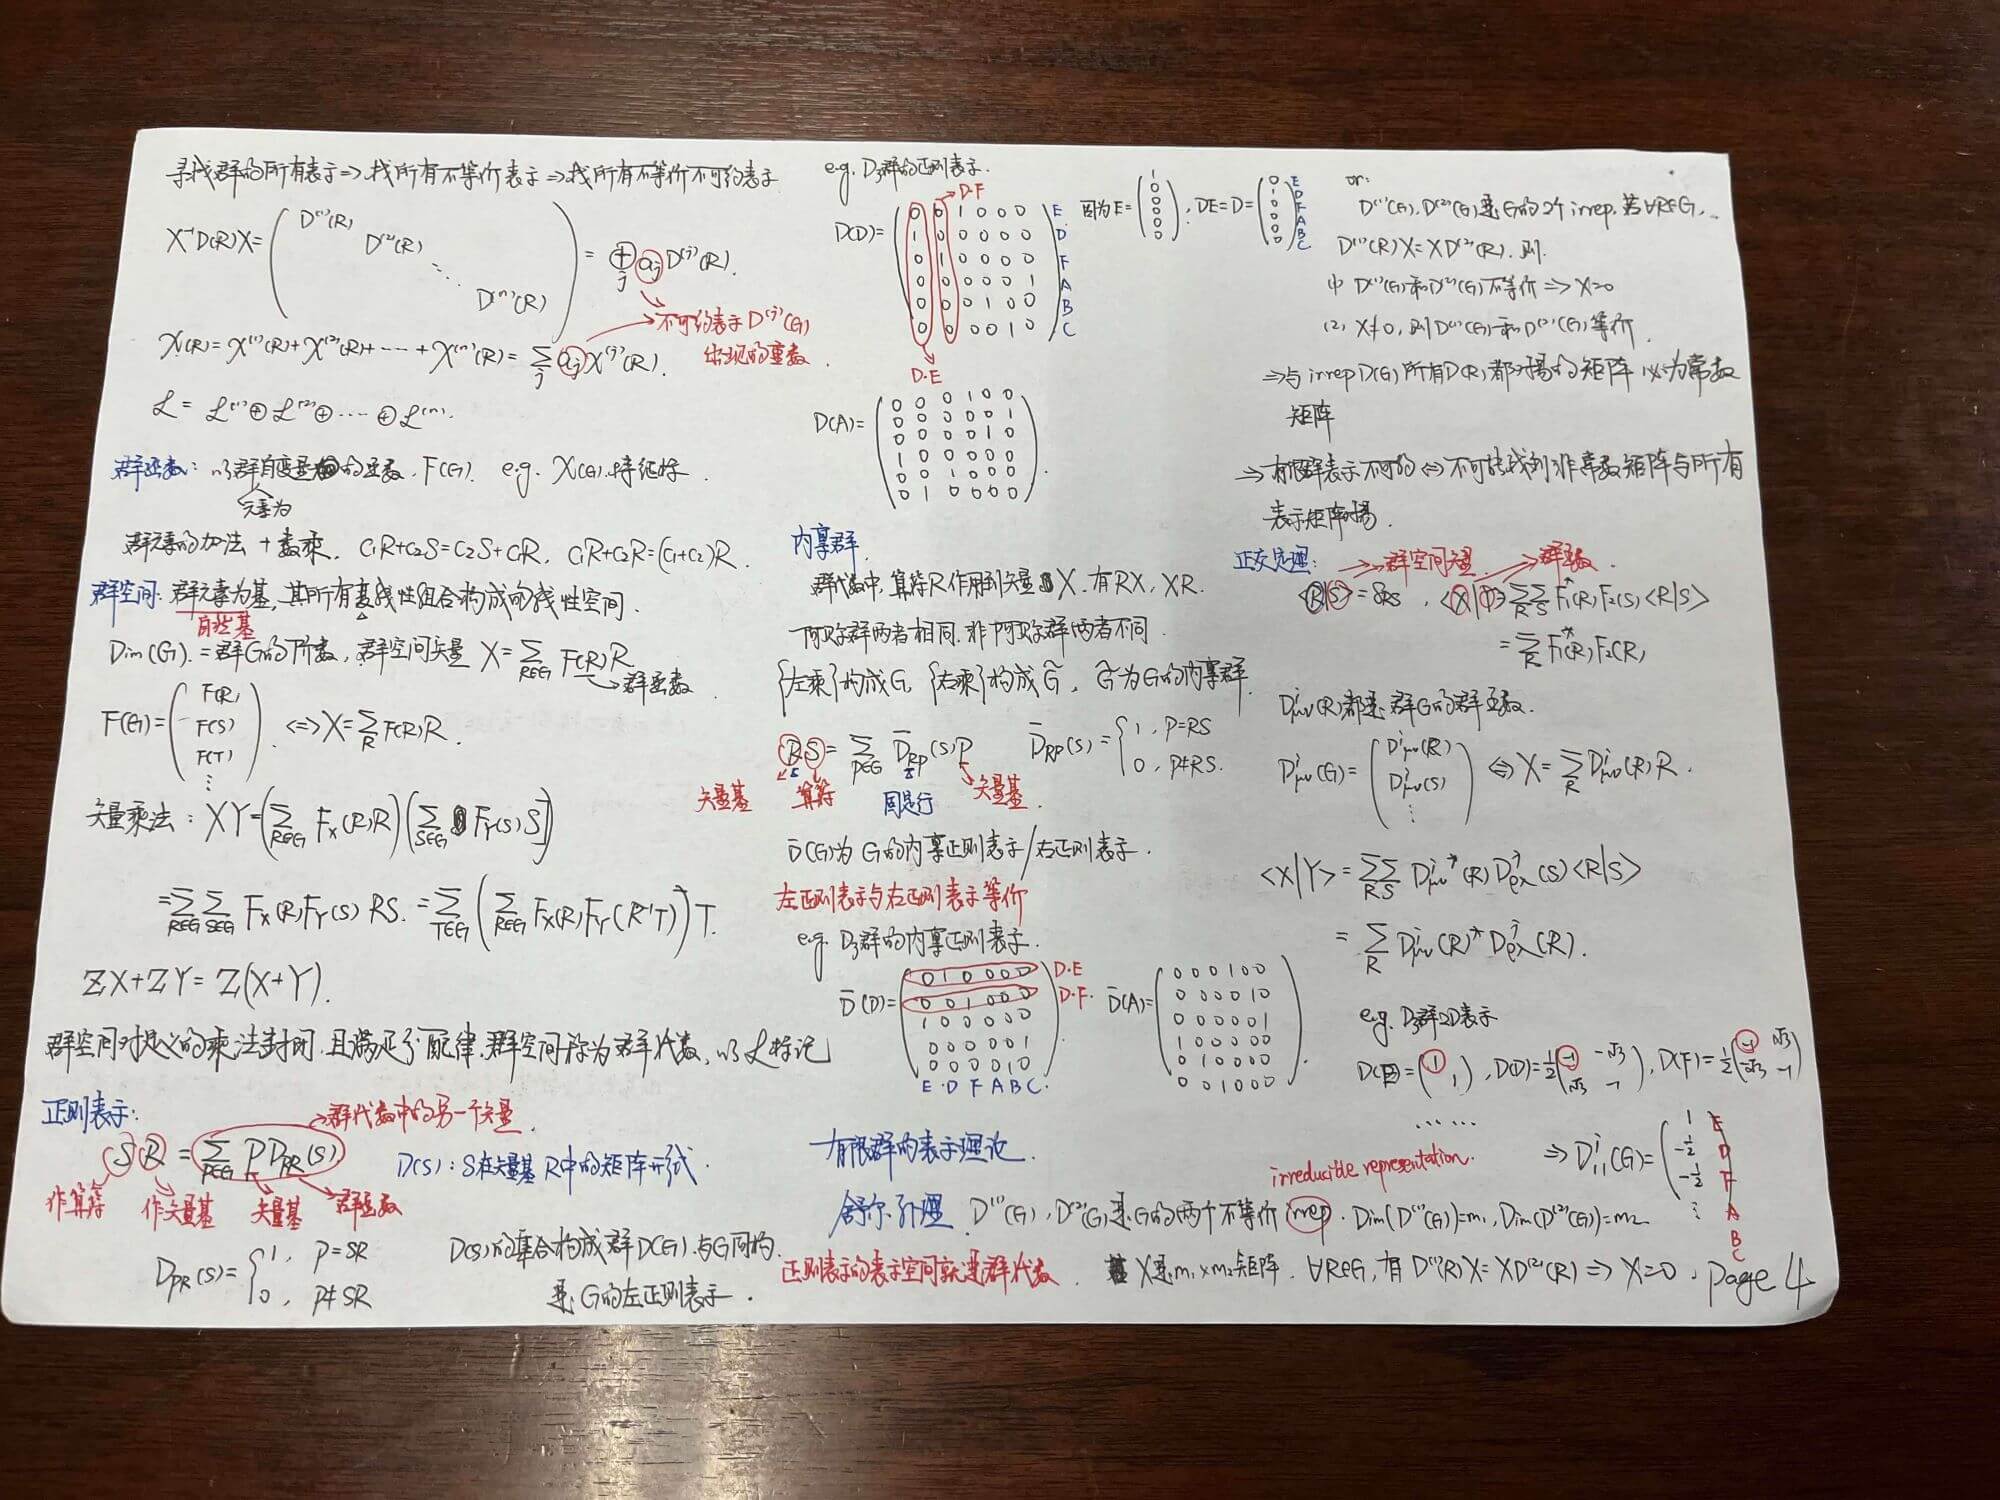 寻找群的所有表示⇒找所有不等价表示⇒找所有不等价不可约表示
X⁻¹D(R)X= ( D⁽¹⁾(R) D⁽²⁾(R) ⋱ D⁽ⁿ⁾(R) ) = ⊕_j a_j D⁽ʲ⁾(R).
不可约表示D⁽ʲ⁾(G)
出现的重数.
χ(R)=χ⁽¹⁾(R)+χ⁽²⁾(R)+⋯+χ⁽ⁿ⁾(R)=Σ_j a_j χ⁽ʲ⁾(R).
ℒ = ℒ⁽¹⁾⊕ℒ⁽²⁾⊕⋯⊕ℒ⁽ⁿ⁾.
群函数: 以群 自变量 的函数, F(G). e.g. χ(G).特征标.
元素为
群元素的加法 + 数乘. C₁R+C₂S=C₂S+C₁R, C₁R+C₂R=(C₁+C₂)R.
群空间: 群元素为基, 其所有复线性组合构成的线性空间.
自然基
Dim(G). =群G的阶数, 群空间矢量 X=Σ_{R∈G} F(R)R
群函数.
F(G)= ( F(R) F(S) F(T) ⋮ ) ⇔X=Σ_R F(R)R.
矢量乘法: XY=(Σ_{R∈G} F_X(R)R)(Σ_{S∈G} F_Y(S)S)
=Σ_{R∈G}Σ_{S∈G} F_X(R)F_Y(S) RS. =Σ_{T∈G}(Σ_{R∈G} F_X(R)F_Y(R⁻¹T))T.
ZX+ZY= Z(X+Y).
群空间对定义的乘法封闭,且满足分配律,群空间称为群代数,以ℒ标记
正则表示:
→群代数中的另一个矢量.
SR = Σ_{P∈G} P D_{PR}(S)
D(S): S在矢量基R中的矩阵形式.
作算符 作矢量基 矢量基 群函数
D_{PR}(S)= { 1, P=SR
0, P≠SR
D(S)的集合构成群D(G).与G同构.
是G的左正则表示.
e.g. D₃群的正则表示.
D·F
D(D)=
0 0 1 0 0 0 E
1 0 0 0 0 0 D
0 1 0 0 0 0 F
0 0 0 0 0 1 A
0 0 0 1 0 0 B
0 0 0 0 1 0 C
D·E
因为E= ( 1 0 0 0 0 0 ), DE=D= ( 0 1 0 0 0 0 ) E D F A B C
D(A)=
0 0 0 1 0 0
0 0 0 0 0 1
0 0 0 0 1 0
1 0 0 0 0 0
0 0 1 0 0 0
0 1 0 0 0 0
内享群.
群代数中,算符R作用到矢量X.有RX, XR.
阿贝尔群两者相同.非阿贝尔群两者不同.
{左乘}构成G, {右乘}构成G̃, G̃为G的内享群.
RS=Σ_{P∈G} D̄_{RP}(S)P D̄_{RP}(S)= { 1, P=RS
0, P≠RS.
矢量基 算符 R是行 矢量基.
D̄(G)为G的内享正则表示/右正则表示.
左正则表示与右正则表示等价
e.g. D₃群的内享正则表示.
D̄(D)=
0 1 0 0 0 0 D·E
0 0 1 0 0 0 D·F.
1 0 0 0 0 0
0 0 0 0 0 1
0 0 0 1 0 0
0 0 0 0 1 0
E·D F A B C.
D̄(A)=
0 0 0 1 0 0
0 0 0 0 1 0
0 0 0 0 0 1
1 0 0 0 0 0
0 1 0 0 0 0
0 0 1 0 0 0
有限群的表示理论.
irreducible representation.
舒尔引理. D⁽¹⁾(G), D⁽²⁾(G)是G的两个不等价irrep. Dim(D⁽¹⁾(G))=m₁, Dim(D⁽²⁾(G))=m₂
正则表示的表示空间就是群代数. X是m₁×m₂矩阵. ∀R∈G,有D⁽¹⁾(R)X=XD⁽²⁾(R)⇒X=0.
or:
D⁽¹⁾(G), D⁽²⁾(G)是G的2个irrep,若∀R∈G,
D⁽¹⁾(R)X=XD⁽²⁾(R).则.
(1) D⁽¹⁾(G)和D⁽²⁾(G)不等价⇒X=0
(2) X≠0,则D⁽¹⁾(G)和D⁽²⁾(G)等价.
⇒与irrep D(G)所有D(R)都对易的矩阵必为常数
矩阵
⇒有限群表示不可约⇔不可能找到非常数矩阵与所有
表示矩阵对易.
正交定理: →群空间矢量. →群函数.
<R|S>=δ_{RS}, <X|Y>=Σ_RΣ_S F₁*(R)F₂(S)<R|S>
=Σ_R F₁*(R)F₂(R)
Dⁱ_{μν}(R)都是群G的群函数.
Dⁱ_{μν}(G)= ( Dⁱ_{μν}(R) Dⁱ_{μν}(S) ⋮ ) ⇔X=Σ_R Dⁱ_{μν}(R)R.
<X|Y>=Σ_RΣ_S Dⁱ_{μν}*(R)Dʲ_{ρλ}(S)<R|S>
=Σ_R Dⁱ_{μν}(R)*Dʲ_{ρλ}(R).
e.g. D₃群2D表示
D(E)=(1 1), D(D)=½(-1 -√3 √3 -1), D(F)=½(-1 √3 -√3 -1)
⋯⋯
⇒Dʲ₁₁(G)= ( 1 -½ -½ ⋮ ) E D F A B C
page 4